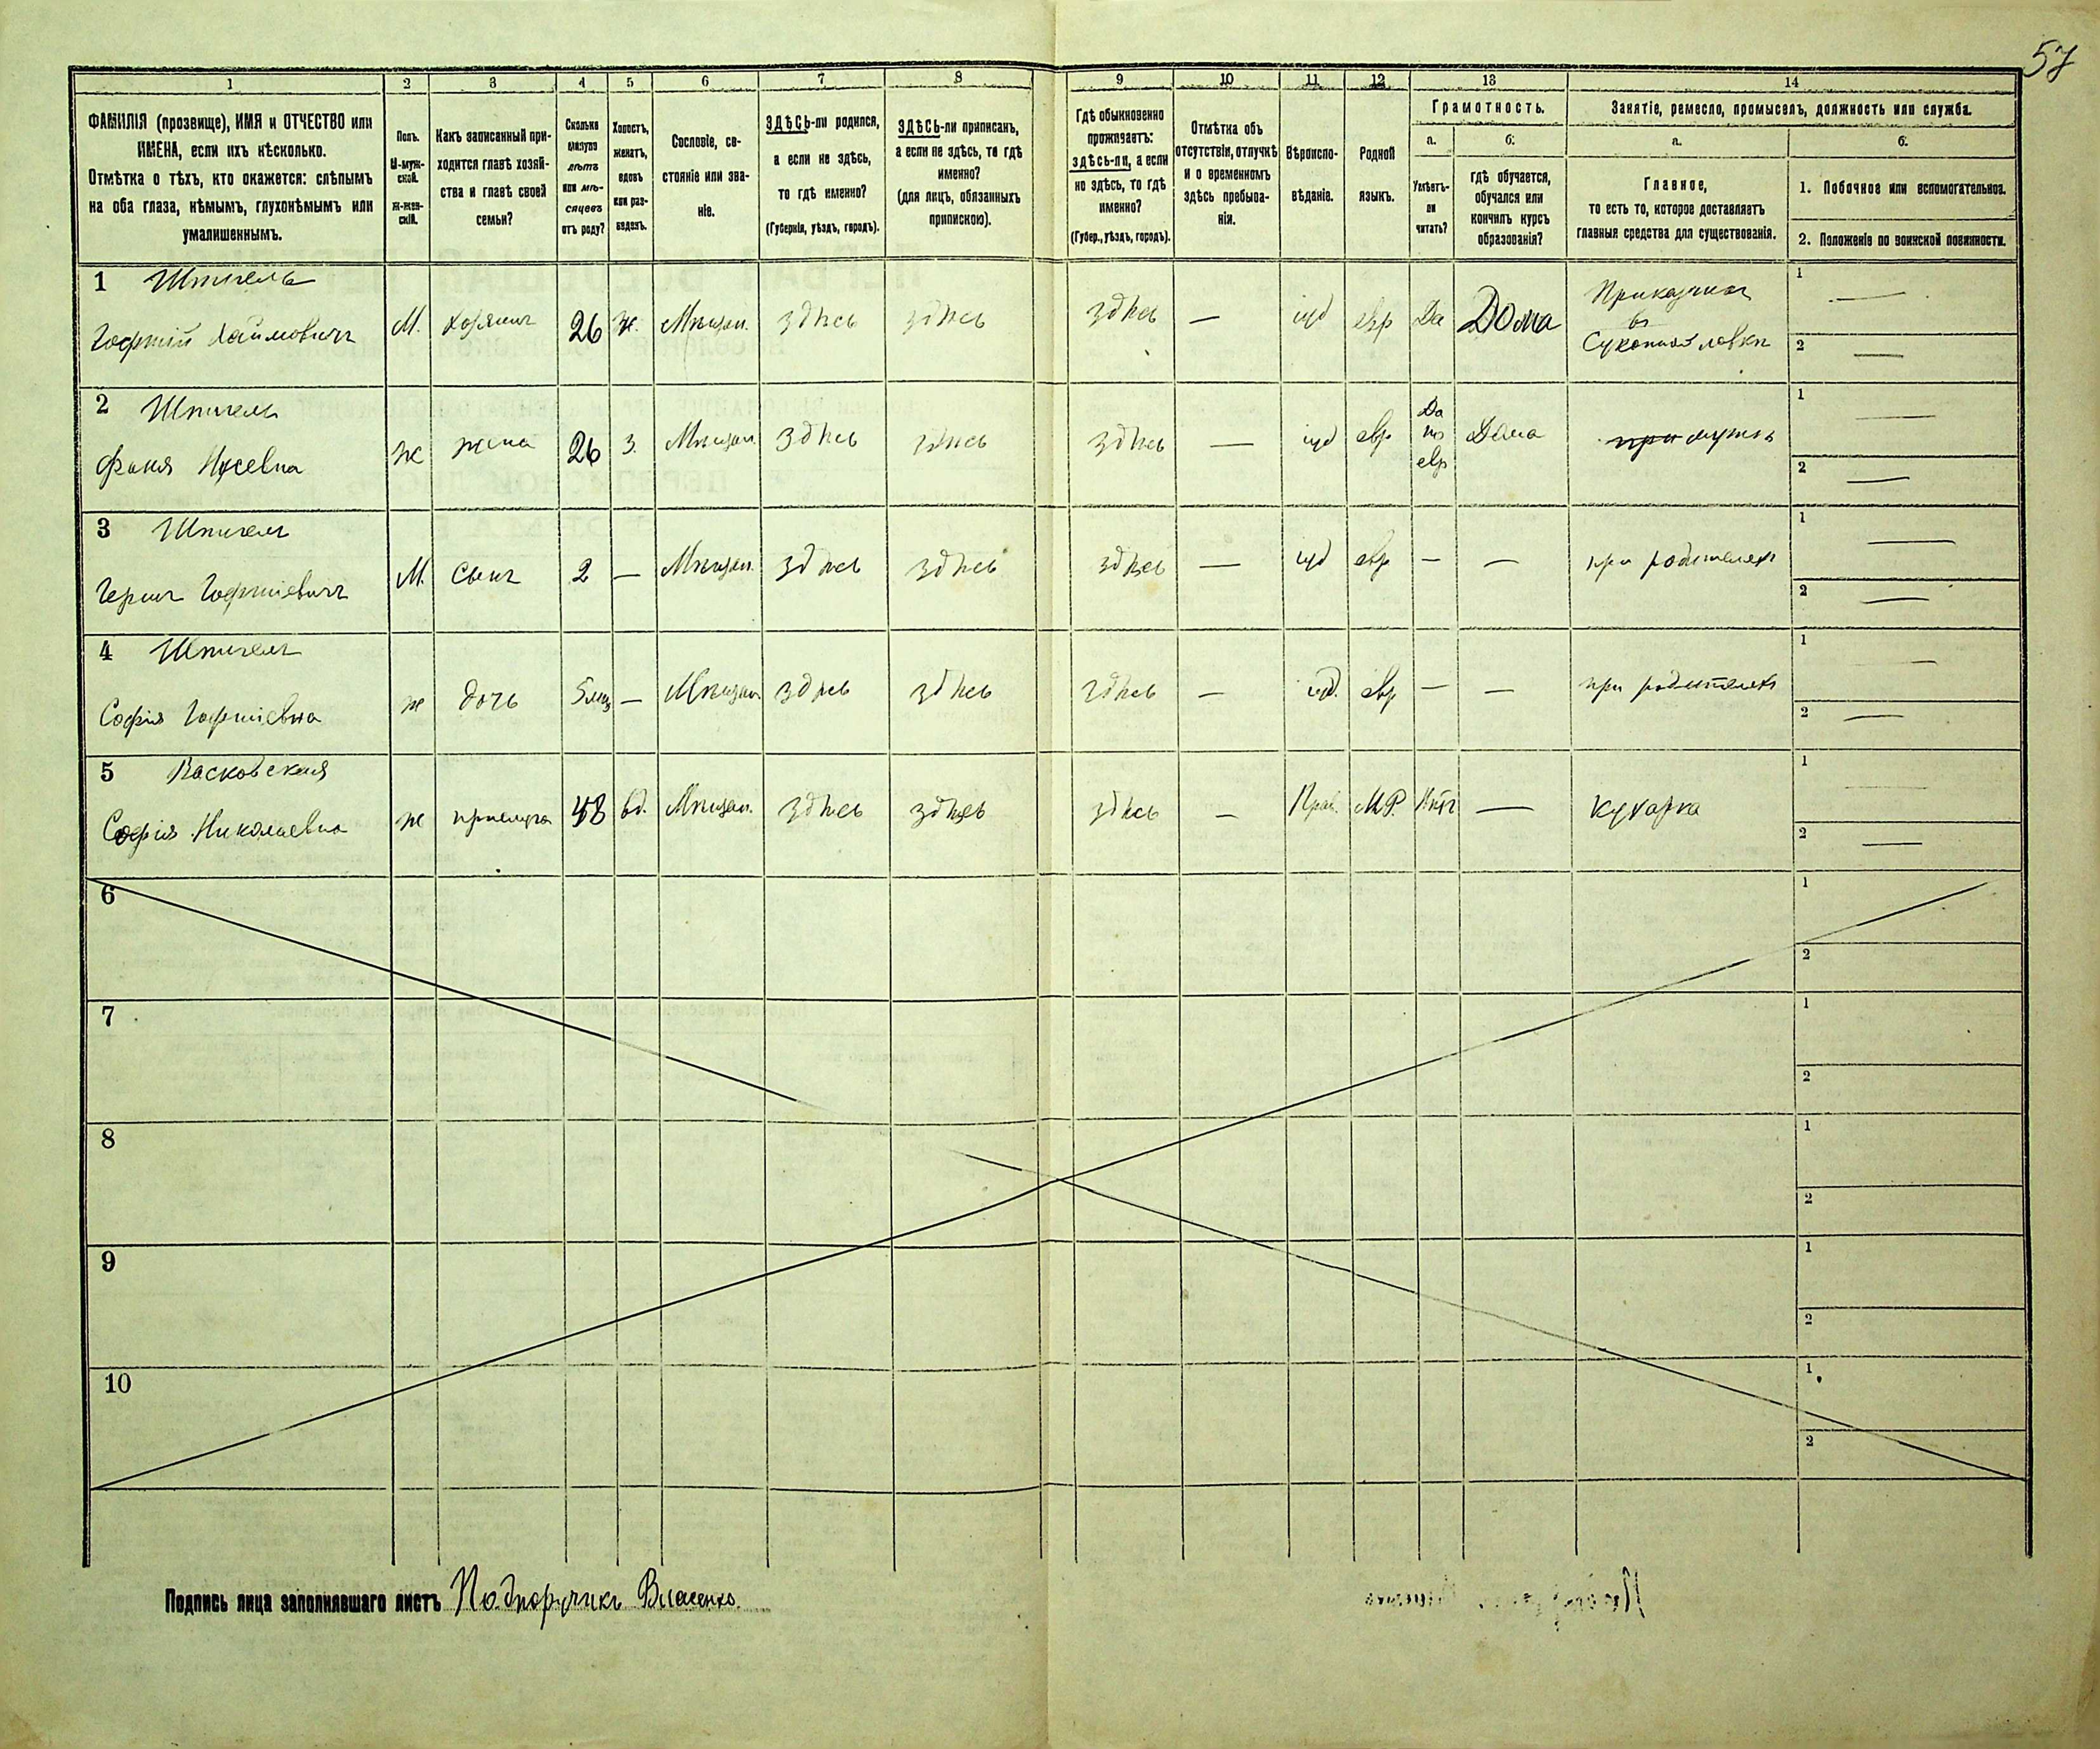 57
1 2 3 4 5 6 7 8 9 10 11 12 13 14
ФАМИЛІЯ (прозвище), ИМЯ и ОТЧЕСТВО или
ИМЕНА, если ихъ нѣсколько.
Отмѣтка о тѣхъ, кто окажется: слѣпымъ
на оба глаза, нѣмымъ, глухонѣмымъ или
умалишеннымъ.
Полъ.
М-муж-
ской.
Ж-жен-
скій.
Какъ записанный при-
ходится главѣ хозяй-
ства и главѣ своей
семьи?
Сколько
минуло
лѣтъ
или мѣ-
сяцевъ
отъ роду?
Холостъ,
женатъ,
вдовъ
или раз-
веденъ.
Сословіе, со-
стояніе или зва-
ніе.
ЗДѢСЬ-ли родился,
а если не здѣсь,
то гдѣ именно?
(Губернія, уѣздъ, городъ).
ЗДѢСЬ-ли приписанъ,
а если не здѣсь, то гдѣ
именно?
(для лицъ, обязанныхъ
припискою).
Гдѣ обыкновенно
проживаетъ:
здѣсь-ли, а если
не здѣсь, то гдѣ
именно?
(Губер., уѣздъ, городъ).
Отмѣтка объ
отсутствіи, отлучкѣ
и о временномъ
здѣсь пребыва-
ніи.
Вѣроиспо-
вѣданіе.
Родной
языкъ.
Грамотность.
а.
Умѣетъ-
ли
читать?
б.
гдѣ обучается,
обучался или
кончилъ курсъ
образованія?
Занятіе, ремесло, промыселъ, должность или служба.
а.
Главное,
то есть то, которое доставляетъ
главныя средства для существованія.
б.
1. Побочное или вспомогательное.
2. Положеніе по воинской повинности.
1 Шпигель
Хаймовичъ М. хозяинъ 26 ж. Мѣщан. здѣсь здѣсь здѣсь — іуд евр Да Дома
Приказчикъ
въ
Суконной лавкѣ
1 —
2 —
2 Шпигель
Фаня ж жена 26 з. Мѣщан. здѣсь здѣсь здѣсь — іуд евр
Да
по
евр
Дома при мужѣ
1 —
2 —
3 Шпигель
Герш М. Сынъ 2 — Мѣщан. здѣсь здѣсь здѣсь — іуд евр — — при родителяхъ
1 —
2 —
4 Шпигель
Софія ж дочь 5 мѣс — Мѣщан. здѣсь здѣсь здѣсь — іуд. евр — — при родителяхъ
1 —
2 —
5
Софія Николаевна ж прислуга 48 вд. Мѣщан. здѣсь здѣсь здѣсь — Прав. М.Р. Нѣтъ — кухарка
1 —
2 —
6 1
2
7 1
2
8 1
2
9 1
2
10 1
2
Подпись лица заполнявшаго листъ Подпоручикъ Власенко.